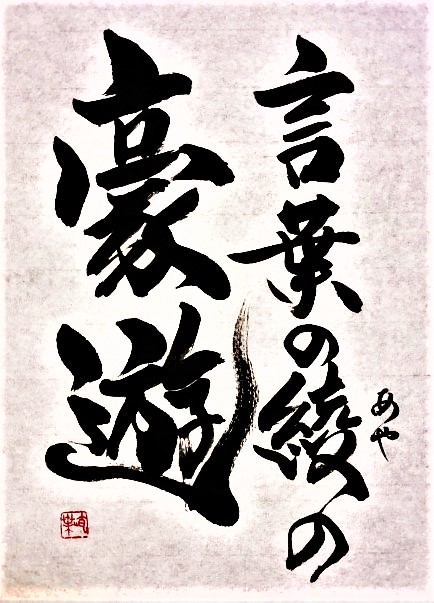 言葉の綾の
あや
豪遊